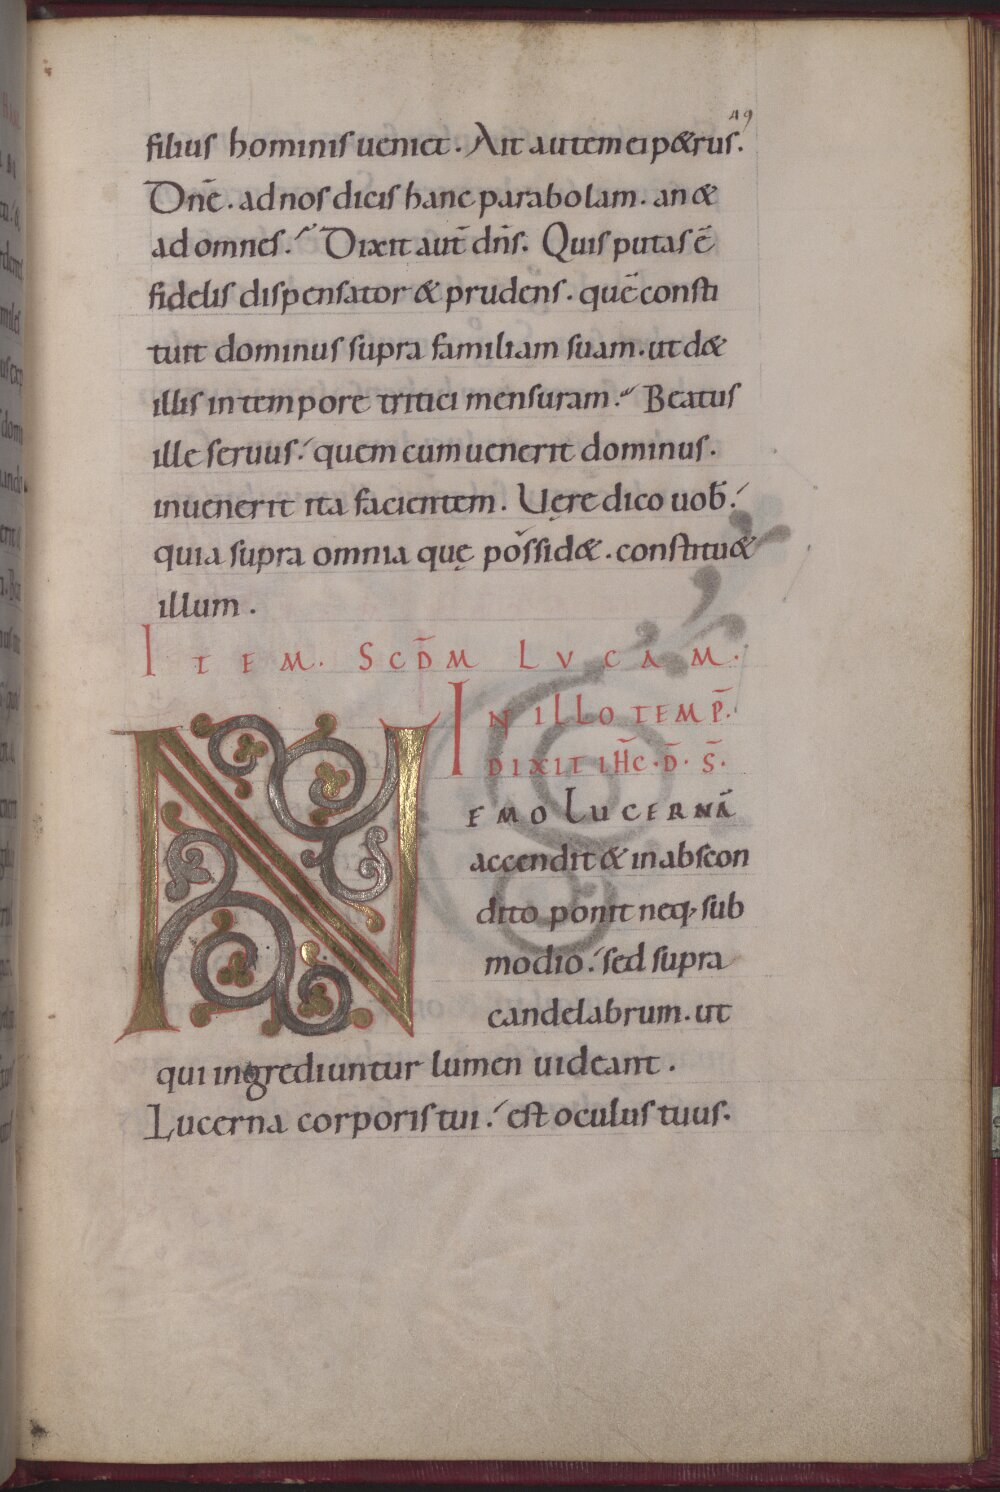 49
filius hominis ueniet. Ait autem ei p&rus.
Dnē. ad nos dicis hanc parabolam. an &
ad omnes. Dixit aut̄ dn̄s. Quis putas ē
fidelis dispensator & prudens. quē consti
tuit dominus supra familiam suam. ut d&
illis in tempore tritici mensuram. Beatus
ille seruus. quem cum uenerit dominus.
inuenerit ita facientem. Uęre dico uob̄.
quia supra omnia quę possid&. constitu&
illum.
ITEM. SCD̄M LVCAM.
IN ILLO TEMP̄.
DIXIT IHC̄. D̄. S̄.
NEMO LUCERNĀ
accendit & in abscon
dito ponit neq; sub
modio. sed supra
candelabrum. ut
qui ingrediuntur lumen uideant.
Lucerna corporis tui. est oculus tuus.